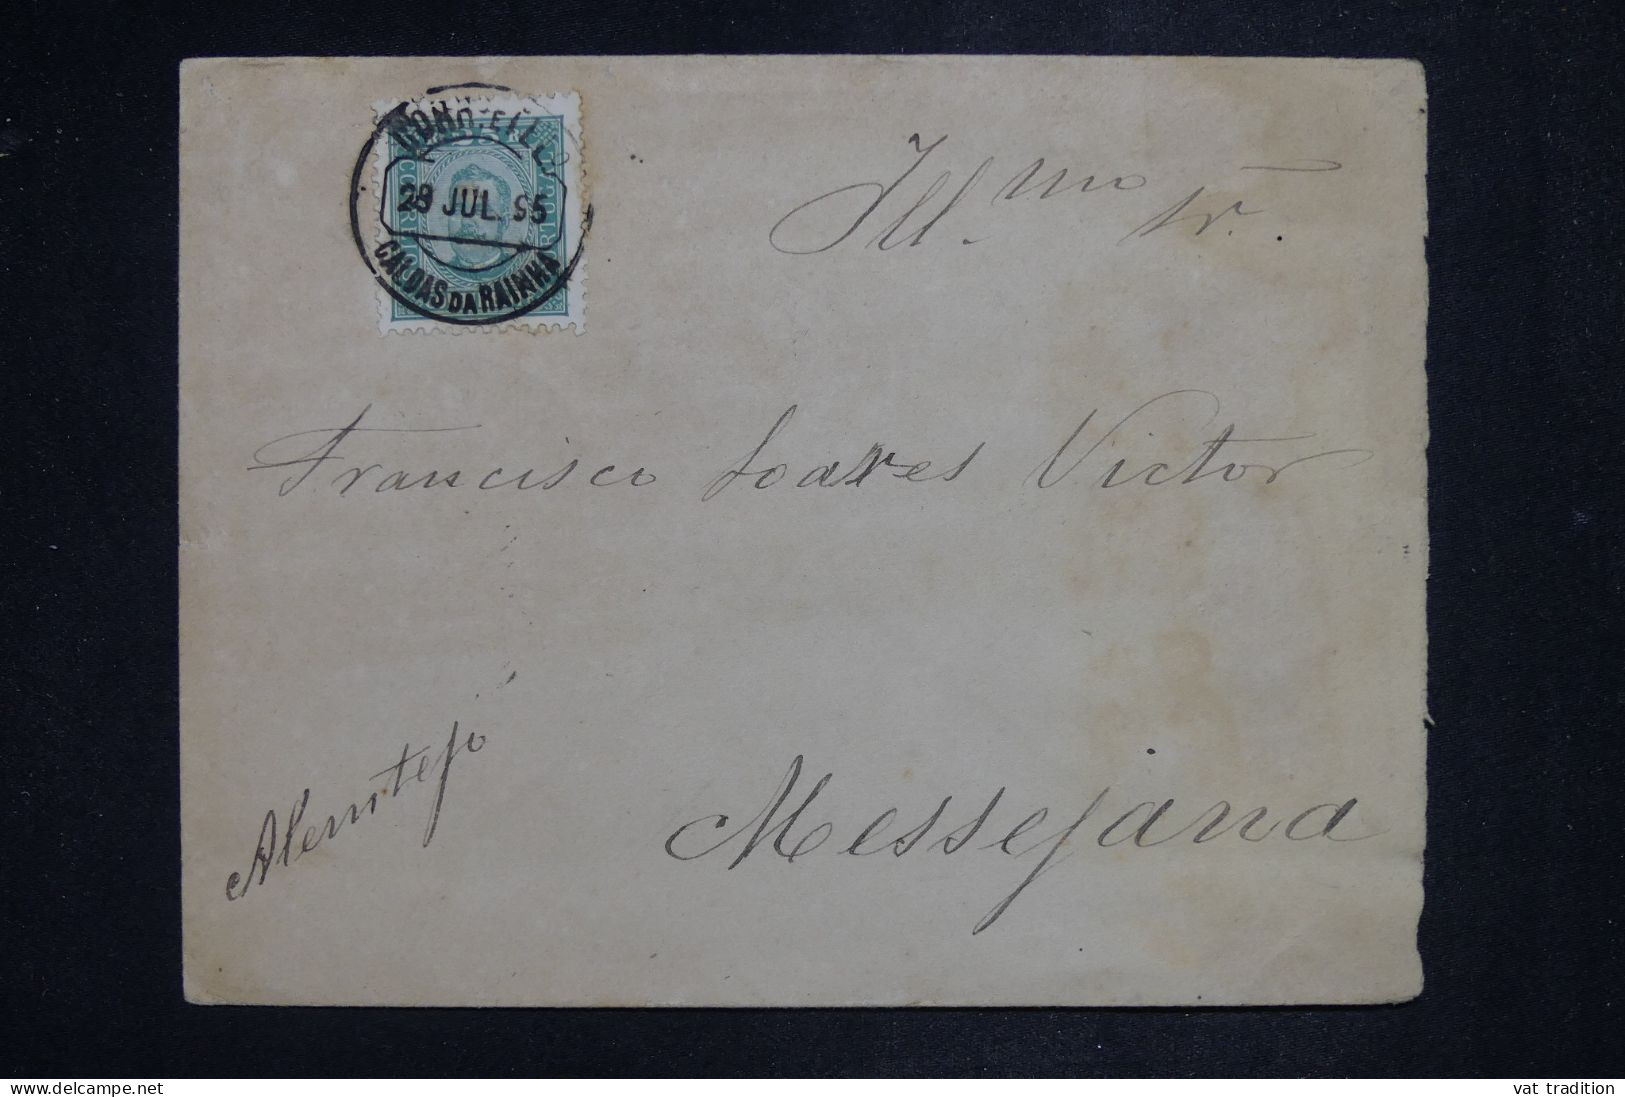 CORR. E TEL.
29 JUL. 95
CALDAS DA RAINHA
25
CORREIO
Ill.mo Sr.
Francisco Soares Victor
Messejana
Alemtejo
delcampe.net
vat tradition